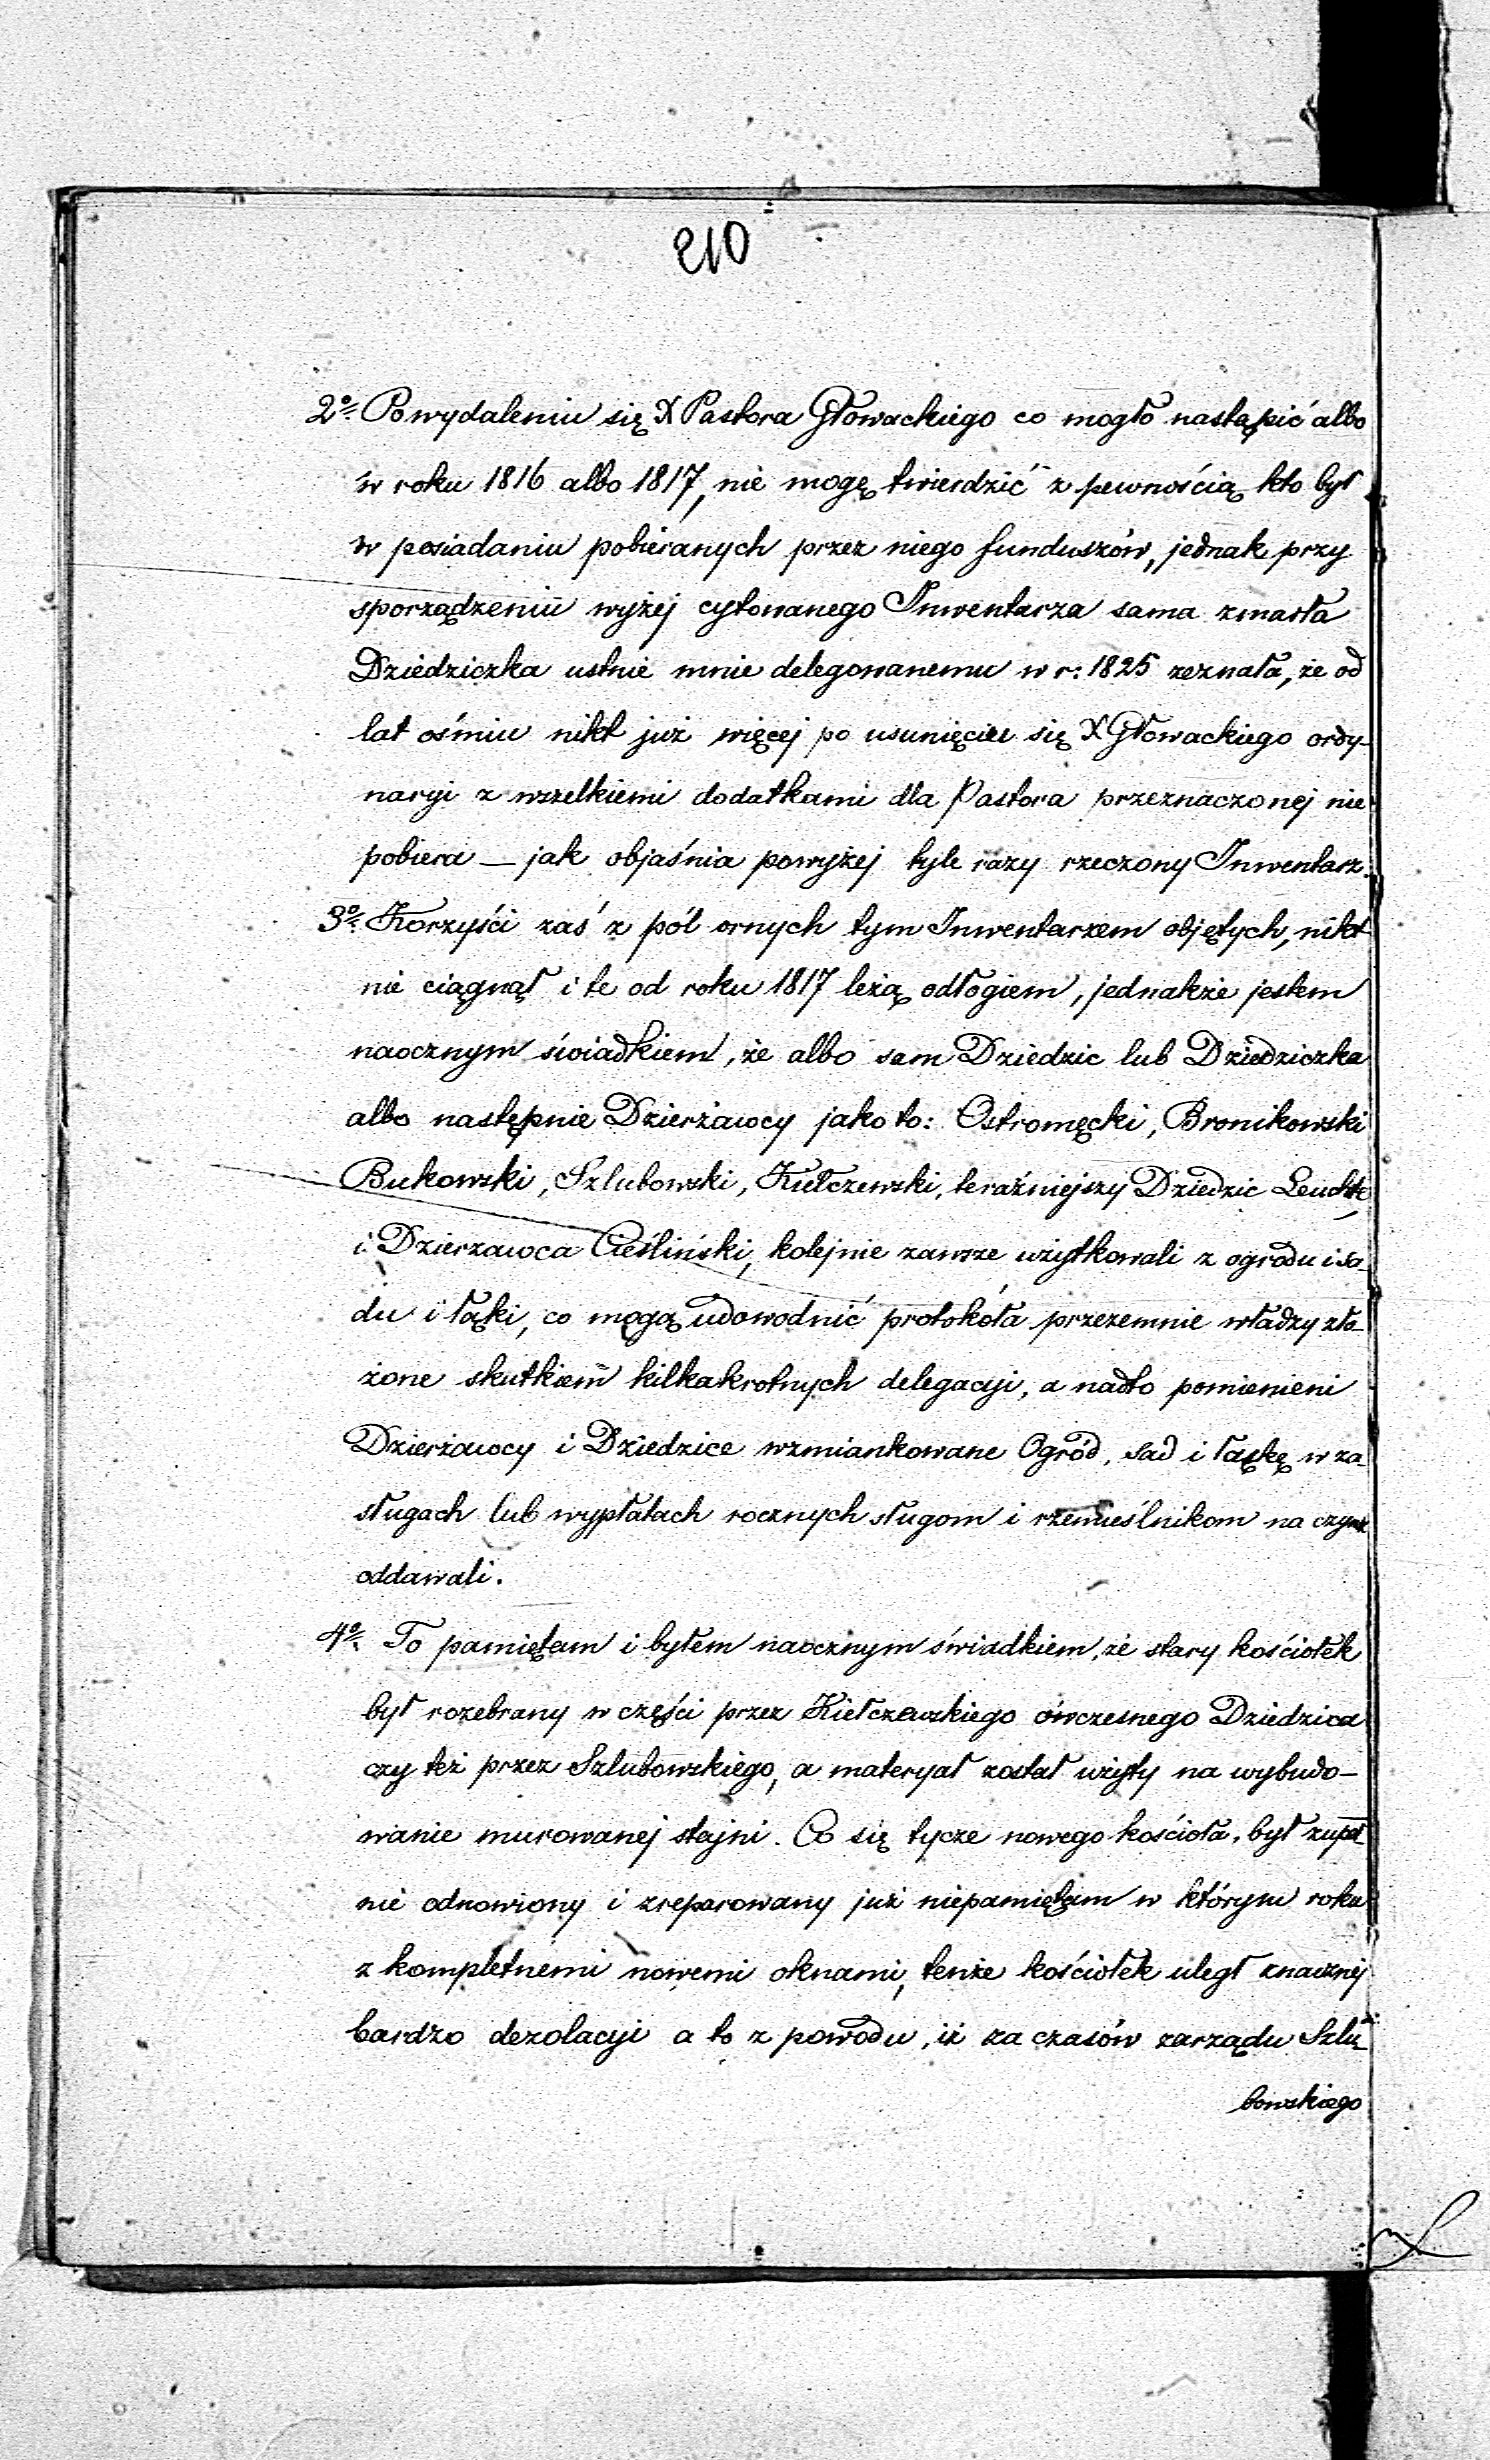 210
2º Po wydaleniu się X Pastora Głowackiego co mogło nastąpić albo
w roku 1816 albo 1817, nie mogę twierdzić z pewnością kto był
w posiadaniu pobieranych przez niego funduszów, jednak przy
sporządzeniu wyżej cytowanego Inwentarza sama zmarła
Dziedziczka ustnie mnie delegowanemu w r: 1825 zeznała, że od
lat ośmiu nikt już więcej po usunięciu się X Głowackiego ordy-
naryi z wszelkiemi dodatkami dla Pastora przeznaczonej nie
pobiera — jak objaśnia powyżej tyle razy rzeczony Inwentarz.
3º Korzyści zaś z pól ornych tym Inwentarzem objętych, nikt
nie ciągnął i te od roku 1817 leżą odłogiem, jednakże jestem
naocznym świadkiem, że albo sam Dziedzic lub Dziedziczka
albo następnie Dzierżawcy jako to: Ostromęcki, Bronikowski
Bukowski, Szlubowski, Kiełczewski, teraźniejszy Dziedzic
i Dzierzawca Cieśliński, kolejnie zawsze użytkowali z ogrodu i sa-
du i łąki, co mogą udowodnić protokóła przezemnie władzy zło-
żone skutkiem kilkakrotnych delegacyi, a nadto pomienieni
Dzierżawcy i Dziedzice wzmiankowane Ogród, sad i łąkę w za-
sługach lub wypłatach rocznych sługom i rzemieślnikom na czynsz
oddawali.
4º To pamiętam i byłem naocznym świadkiem, że stary kościołek
był rozebrany w części przez Kiełczewskiego ówczesnego Dziedzica
czy też przez Szlubowskiego, a materyał został użyty na wybudo-
wanie murowanej stajni. Co się tycze nowego kościoła, był zupeł-
nie odnowiony i zreparowany już niepamiętam w którym roku
z kompletnemi nowemi oknami, tenże kościołek uległ znacznej
bardzo dezolacyi a to z powodu, iż za czasów zarządu Szlu-
bowskiego